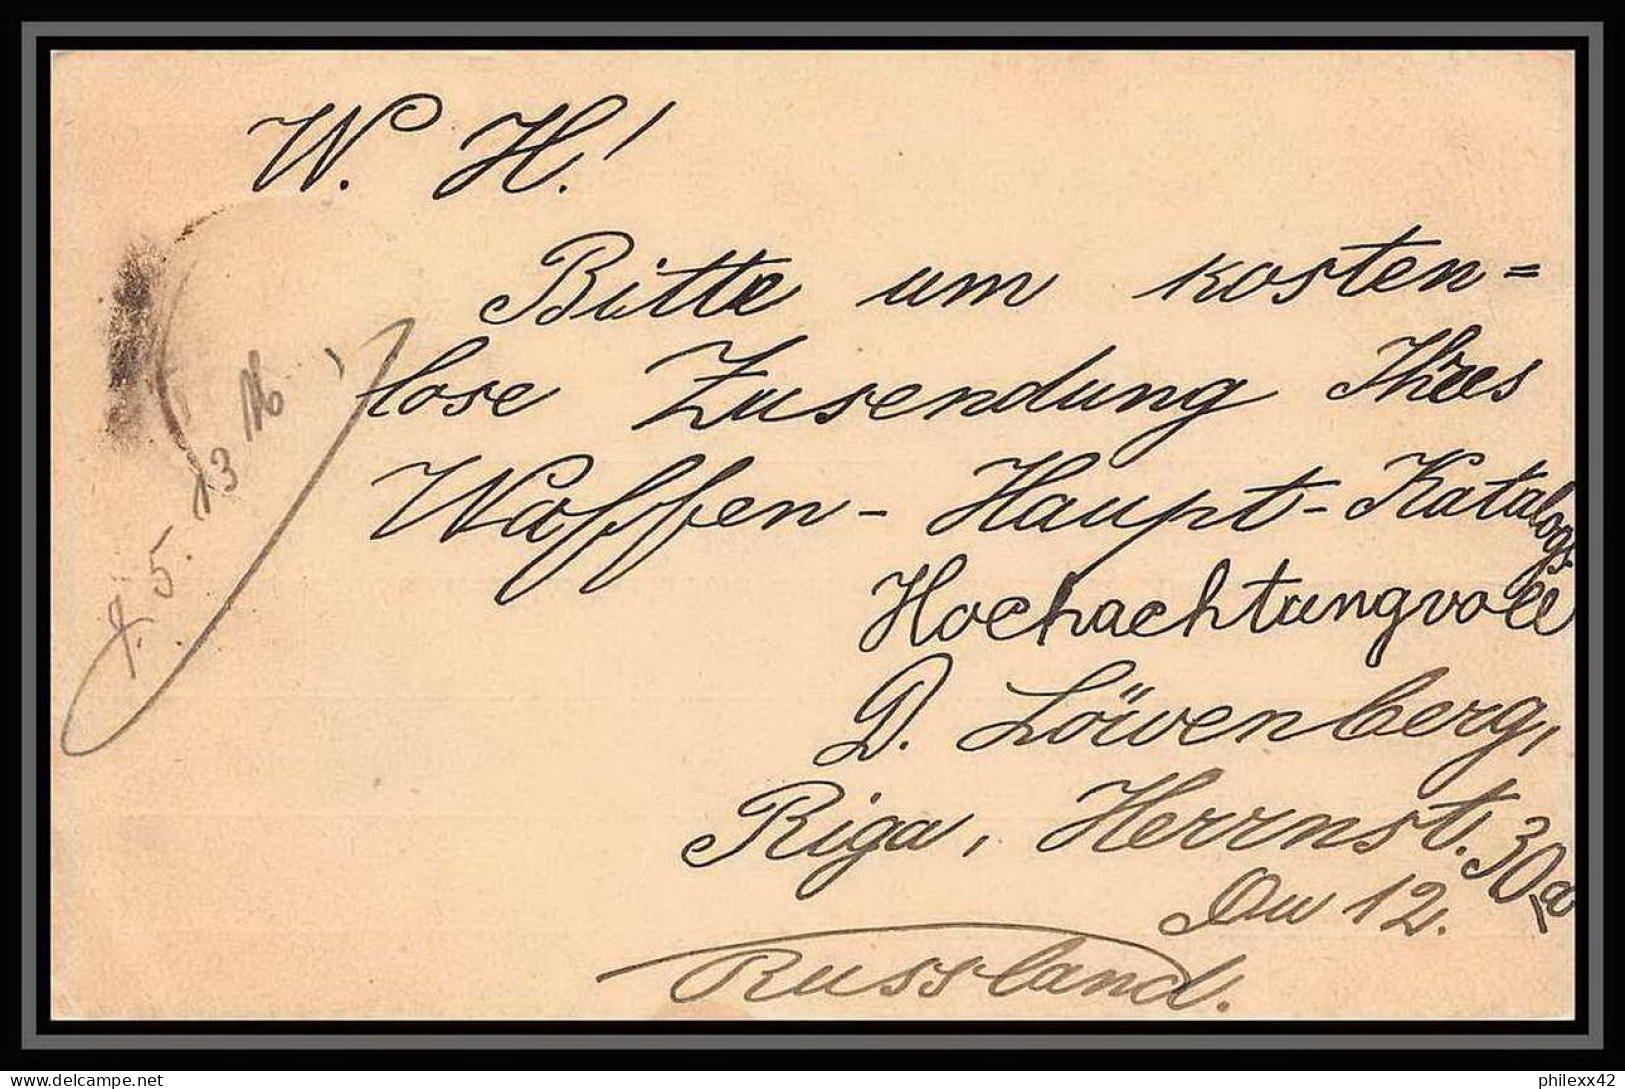 W. H!
Bitte um kosten=
lose Zusendung Ihres
Waffen-Haupt-Katalogs.
Hochachtungvoll
D. Löwenberg,
Riga, Herrnst. 30a
Qu 12.
Russland.
5. 13
delcampe.net
philexx42